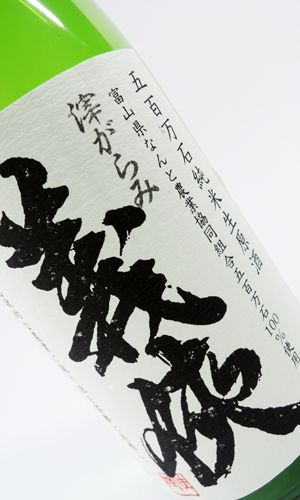 五百万石純米生原酒
富山県なんと農業協同組合五百万石100%使用
滓がらみ
義侠